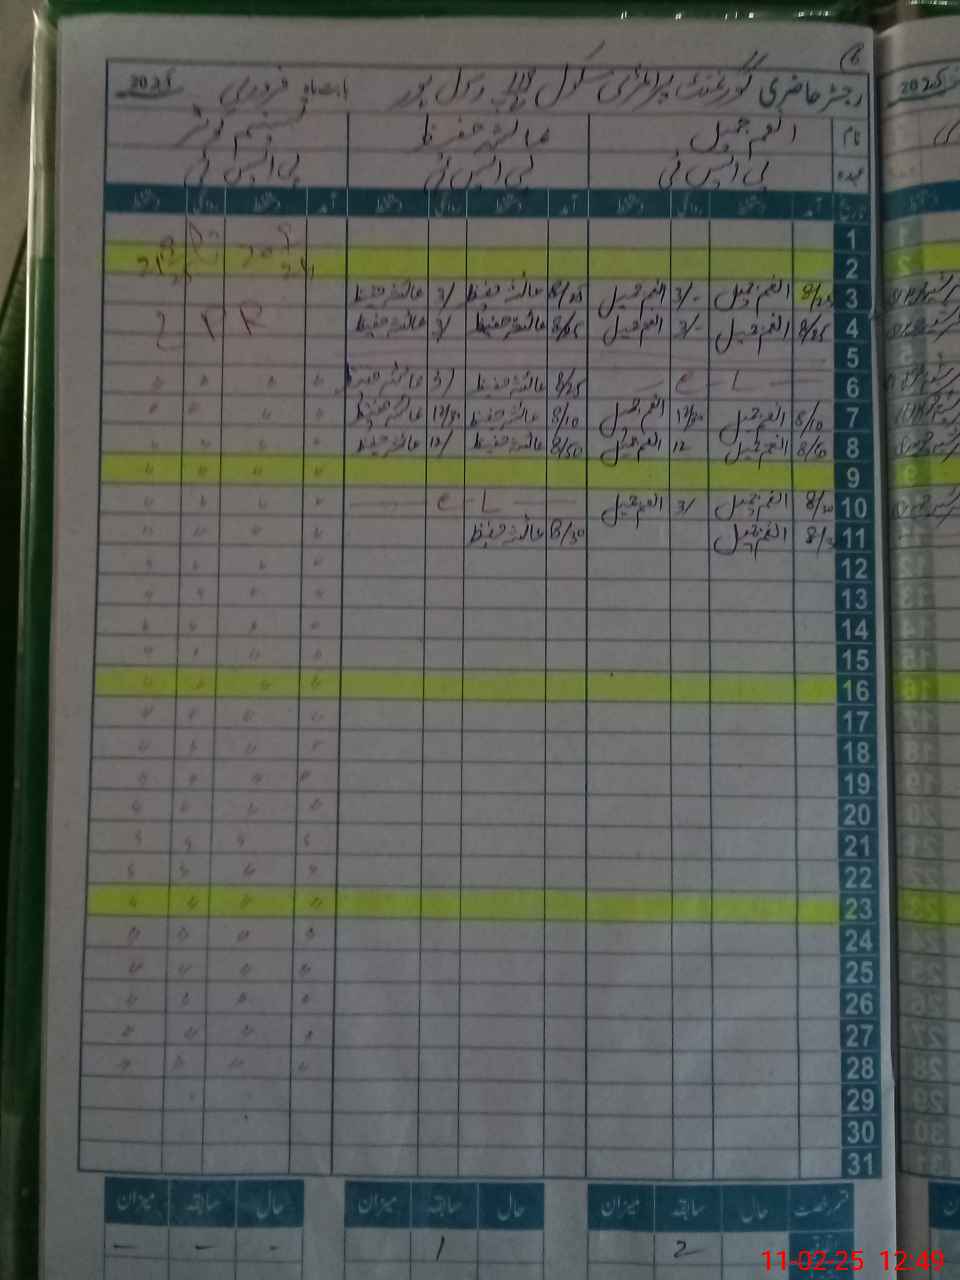 رجسٹر حاضری گورنمنٹ پرائمری سکول رسول پور بابت ماہ فروری 2025
نام انعم جمیل عائشہ حفیظ تبسم کوثر
عہدہ پی ایس ٹی پی ایس ٹی پی ایس ٹی
تاریخ آمد دستخط روانگی دستخط آمد دستخط روانگی دستخط آمد دستخط روانگی دستخط
1
2
3 8/25 انعم جمیل 3/- انعم جمیل 8/25 عائشہ حفیظ 3/ عائشہ حفیظ
4 8/25 انعم جمیل 3/- انعم جمیل 8/25 عائشہ حفیظ 3/ عائشہ حفیظ
5
6 C - L 8/25 عائشہ حفیظ 3/ عائشہ حفیظ " " " "
7 8/10 انعم جمیل 12/30 انعم جمیل 8/10 عائشہ حفیظ 12/30 عائشہ حفیظ " " " "
8 8/50 انعم جمیل 12 انعم جمیل 8/50 عائشہ حفیظ 12/ عائشہ حفیظ " " " "
9 " " " "
10 8/30 انعم جمیل 3/ انعم جمیل C - L " " " "
11 انعم جمیل 8/30 عائشہ حفیظ " " " "
12 " " " "
13 " " " "
14 " " " "
15 " " " "
16 " " " "
17 " " " "
18 " " " "
19 " " " "
20 " " " "
21 " " " "
22 " " " "
23 " " " "
24 " " " "
25 " " " "
26 " " " "
27 " " " "
28 " " " "
29
30
31
حال سابقہ میزان حال سابقہ میزان حال سابقہ میزان
2 1 - - -
11-02-25 12:49